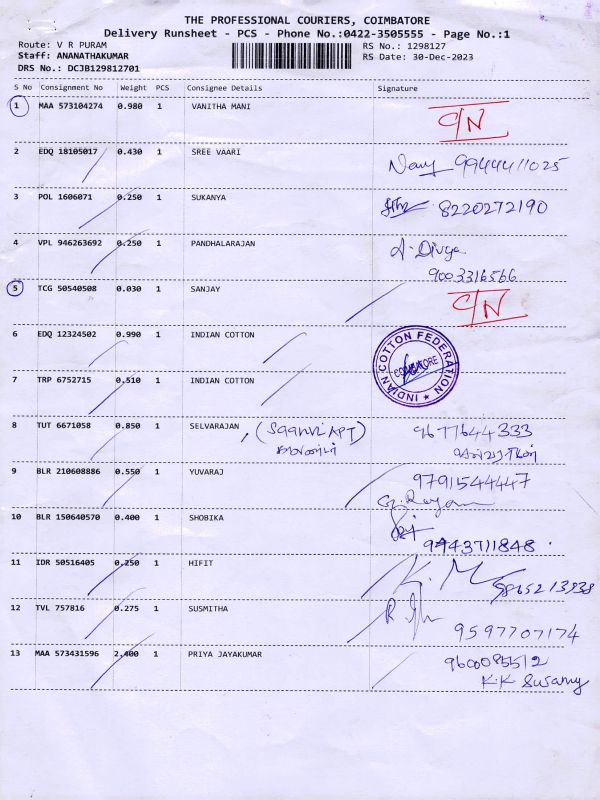 THE PROFESSIONAL COURIERS, COIMBATORE
Delivery Runsheet - PCS - Phone No.:0422-3505555 - Page No.:1
Route: V R PURAM
RS No.: 1298127
Staff: ANANATHAKUMAR
RS Date: 30-Dec-2023
DRS No.: DCJB129812701
S No Consignment No Weight PCS Consignee Details Signature
1 MAA 573104274 0.980 1 VANITHA MANI C/N
2 EDQ 18105017 0.430 1 SREE VAARI 9944411025
3 POL 1606071 0.250 1 SUKANYA 8220272190
4 VPL 946263692 0.250 1 PANDHALARAJAN A. Divya
9003316566
5 TCG 50540508 0.030 1 SANJAY C/N
6 EDQ 12324502 0.990 1 INDIAN COTTON
INDIAN COTTON FEDERATION
COIMBATORE
7 TRP 6752715 0.510 1 INDIAN COTTON
8 TUT 6671058 0.850 1 SELVARAJAN 9677644333
9 BLR 210608886 0.550 1 YUVARAJ 9791544447
10 BLR 150640570 0.400 1 SHOBIKA
9943711848
11 IDR 50516405 0.250 1 HIFIT
12 TVL 757816 0.275 1 SUSMITHA
9597707174
13 MAA 573431596 2.400 1 PRIYA JAYAKUMAR 9600085512
K.K